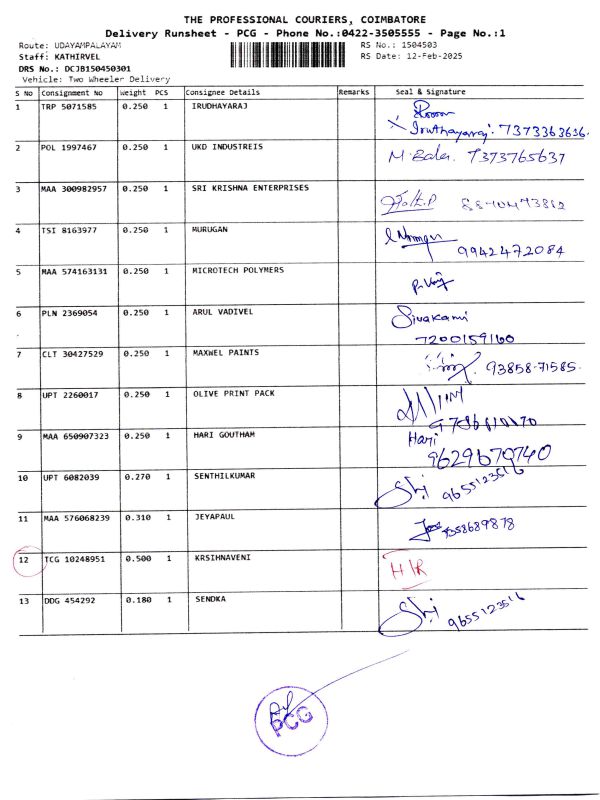 THE PROFESSIONAL COURIERS, COIMBATORE
Delivery Runsheet - PCG - Phone No.:0422-3505555 - Page No.:1
Route: UDAYAMPALAYAM RS No.: 1504503
Staff: KATHIRVEL RS Date: 12-Feb-2025
DRS No.: DCJB150450301
Vehicle: Two Wheeler Delivery
S No Consignment No Weight PCS Consignee Details Remarks Seal & Signature
1 TRP 5071585 0.250 1 IRUDHAYARAJ
Iruthayaraj. 7373363636.
2 POL 1997467 0.250 1 UKD INDUSTREIS M. Bala. 7373765637
3 MAA 300982957 0.250 1 SRI KRISHNA ENTERPRISES
4 TSI 8163977 0.250 1 MURUGAN
9942472084
5 MAA 574163131 0.250 1 MICROTECH POLYMERS
6 PLN 2369054 0.250 1 ARUL VADIVEL Sivakami
7200159160
7 CLT 30427529 0.250 1 MAXWEL PAINTS 93858-71585.
8 UPT 2260017 0.250 1 OLIVE PRINT PACK
9 MAA 650907323 0.250 1 HARI GOUTHAM Hari
9629670740
10 UPT 6082039 0.270 1 SENTHILKUMAR 9655123516
11 MAA 576068239 0.310 1 JEYAPAUL 7358689878
12 TCG 10248951 0.500 1 KRSIHNAVENI H/R
13 DDG 454292 0.180 1 SENDKA 9655123516
PCG